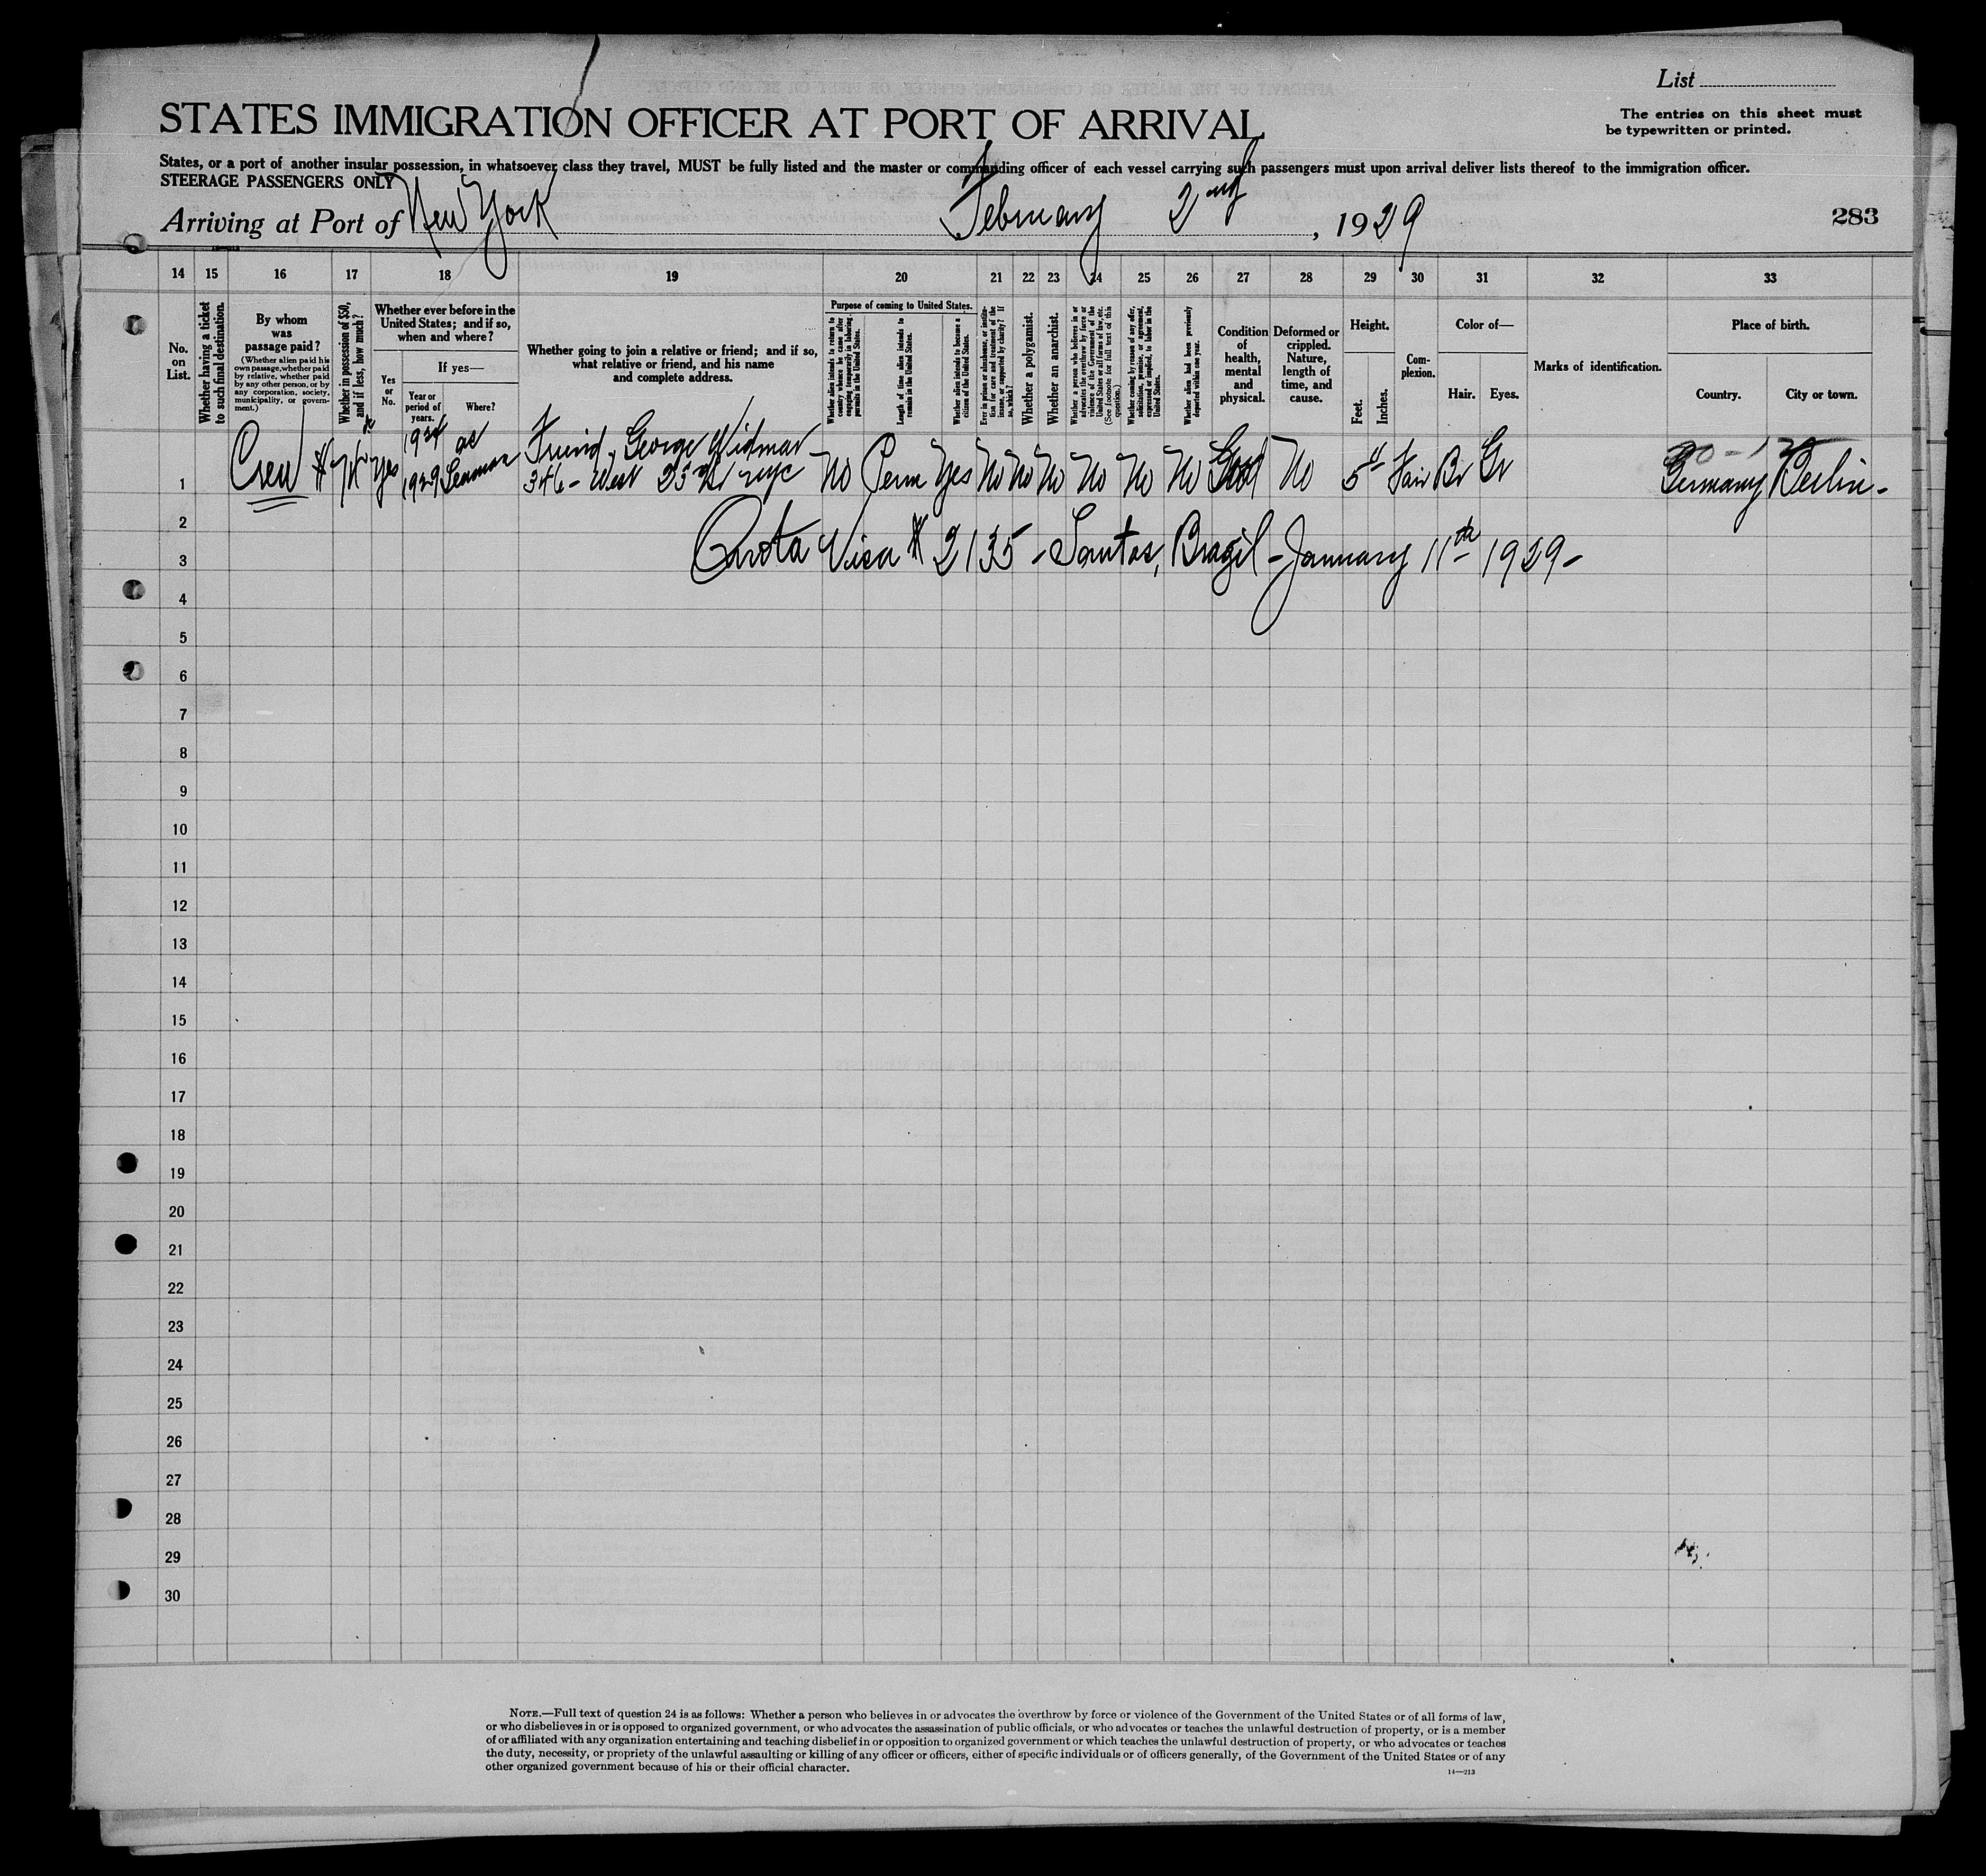 List
STATES IMMIGRATION OFFICER AT PORT OF ARRIVAL
The entries on this sheet must
be typewritten or printed.
States, or a port of another insular possession, in whatsoever class they travel, MUST be fully listed and the master or commanding officer of each vessel carrying such passengers must upon arrival deliver lists thereof to the immigration officer.
STEERAGE PASSENGERS ONLY
Arriving at Port of New York February 2nd, 1929
283
14 15 16 17 18 19 20 21 22 23 24 25 26 27 28 29 30 31 32 33
No. on List.
Whether having a ticket to such final destination.
By whom was passage paid?
(Whether alien paid his own passage, whether paid by relative, whether paid by any other person, or by any corporation, society, municipality, or government.)
Whether in possession of $50, and if less, how much?
Whether ever before in the United States; and if so, when and where?
Yes or No.
If yes—
Year or period of years.
Where?
Whether going to join a relative or friend; and if so, what relative or friend, and his name and complete address.
Purpose of coming to United States.
Whether alien intends to return to country whence he came after engaging temporarily in laboring pursuits in the United States.
Length of time alien intends to remain in the United States.
Whether alien intends to become a citizen of the United States.
Ever in prison or almshouse, or institution for care and treatment of the insane, or supported by charity? If so, which?
Whether a polygamist.
Whether an anarchist.
Whether a person who believes in or advocates the overthrow by force or violence of the Government of the United States or all forms of law, etc. (See footnote for full text of this question.)
Whether coming by reason of any offer, solicitation, promise, or agreement, expressed or implied, to labor in the United States.
Whether alien had been previously deported within one year.
Condition of health, mental and physical.
Deformed or crippled. Nature, length of time, and cause.
Height.
Feet. Inches.
Complexion.
Color of—
Hair. Eyes.
Marks of identification.
Place of birth.
Country. City or town.
1 Crew yes 1929 as Seaman Friend, George Widmar
346 - West 23rd St NYC No Perm Yes No No No No No No Good No 5 Fair Br Gr Germany Berlin -
2
Quota Visa # 2135 - Santos, Brazil - January 11th 1929 -
3
4
5
6
7
8
9
10
11
12
13
14
15
16
17
18
19
20
21
22
23
24
25
26
27
28
29
30
NOTE.—Full text of question 24 is as follows: Whether a person who believes in or advocates the overthrow by force or violence of the Government of the United States or of all forms of law,
or who disbelieves in or is opposed to organized government, or who advocates the assassination of public officials, or who advocates or teaches the unlawful destruction of property, or is a member
of or affiliated with any organization entertaining and teaching disbelief in or opposition to organized government or which teaches the unlawful destruction of property, or who advocates or teaches
the duty, necessity, or propriety of the unlawful assaulting or killing of any officer or officers, either of specific individuals or of officers generally, of the Government of the United States or of any
other organized government because of his or their official character.
14—213